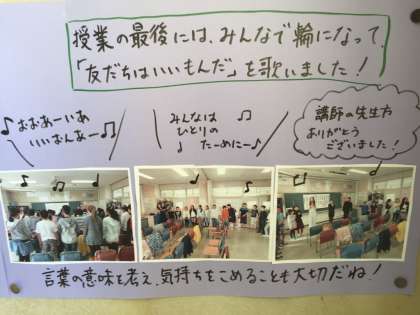 授業の最後には、みんなで輪になって、
「友だちはいいもんだ」を歌いました！
♪おおあーいあ
いいおんあー♫
みんなは
ひとりの
たーめにー♪
講師の先生方
ありがとう
ございました！
言葉の意味を考え、気持ちをこめることも大切だね！